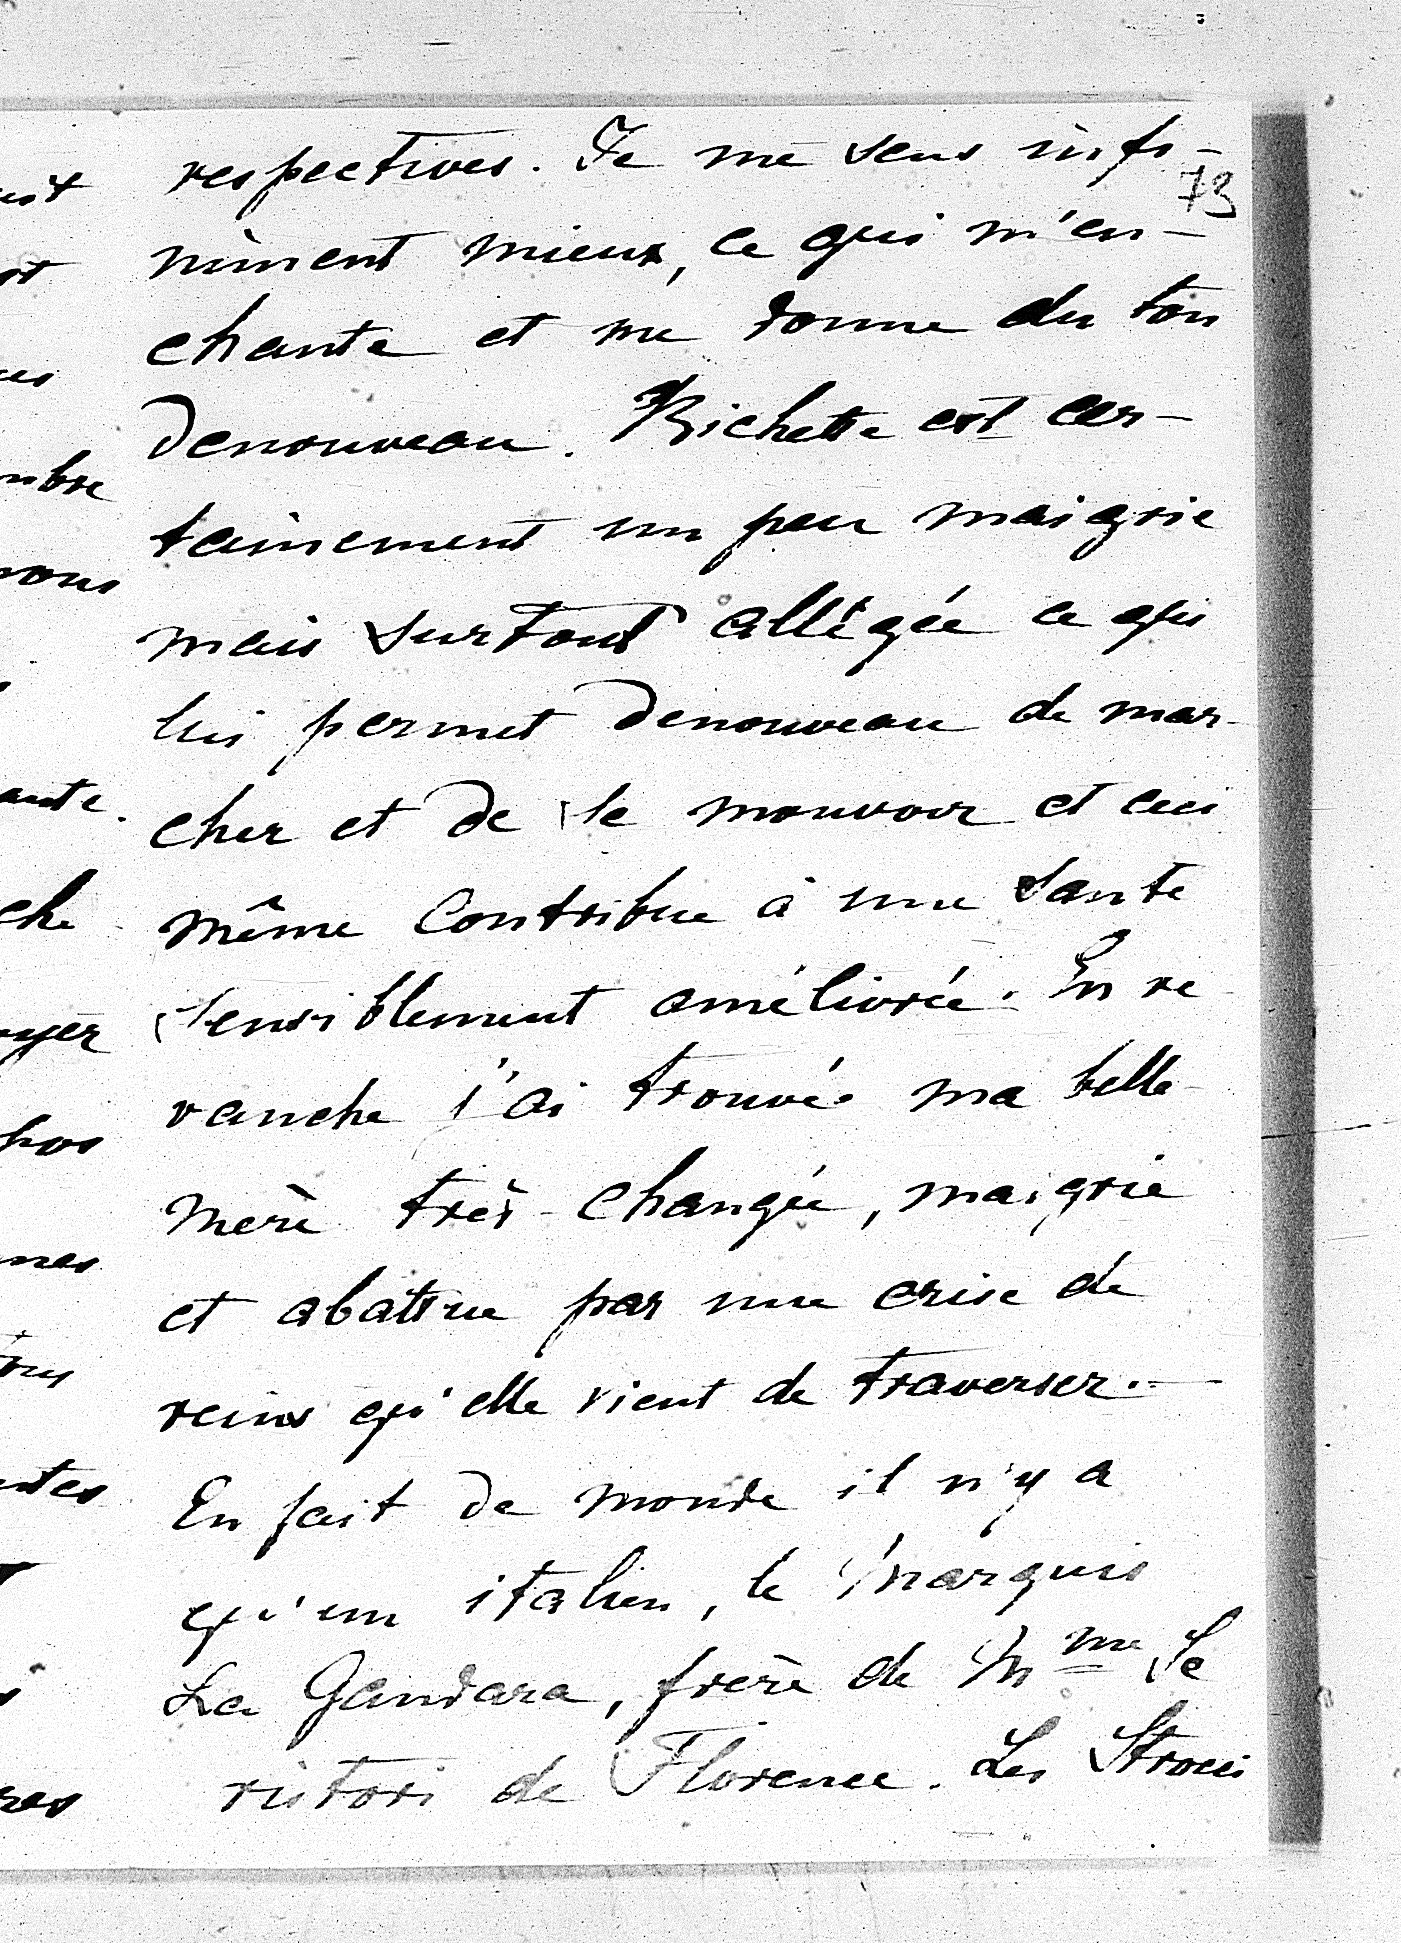 respectives. Je me sens infi-
73
niment mieux, ce qui m'en-
chante et me donne du ton
denouveau. Bichette est cer-
tainement un peu maigrie
mais surtout allégée ce qui
lui permet denouveau de mar-
cher et de se mouvoir et ceci
même contribue à une santé
sensiblement améliorée. En re
vanche j'ai trouvée ma belle-
mère très changée, maigrie
et abattue par une crise de
reins qu'elle vient de traverser.—
En fait de monde il n'y a
qu'un italien, le Marquis
La Gandara, frère de Mme Se
ristori de Florence. Les Strozzi